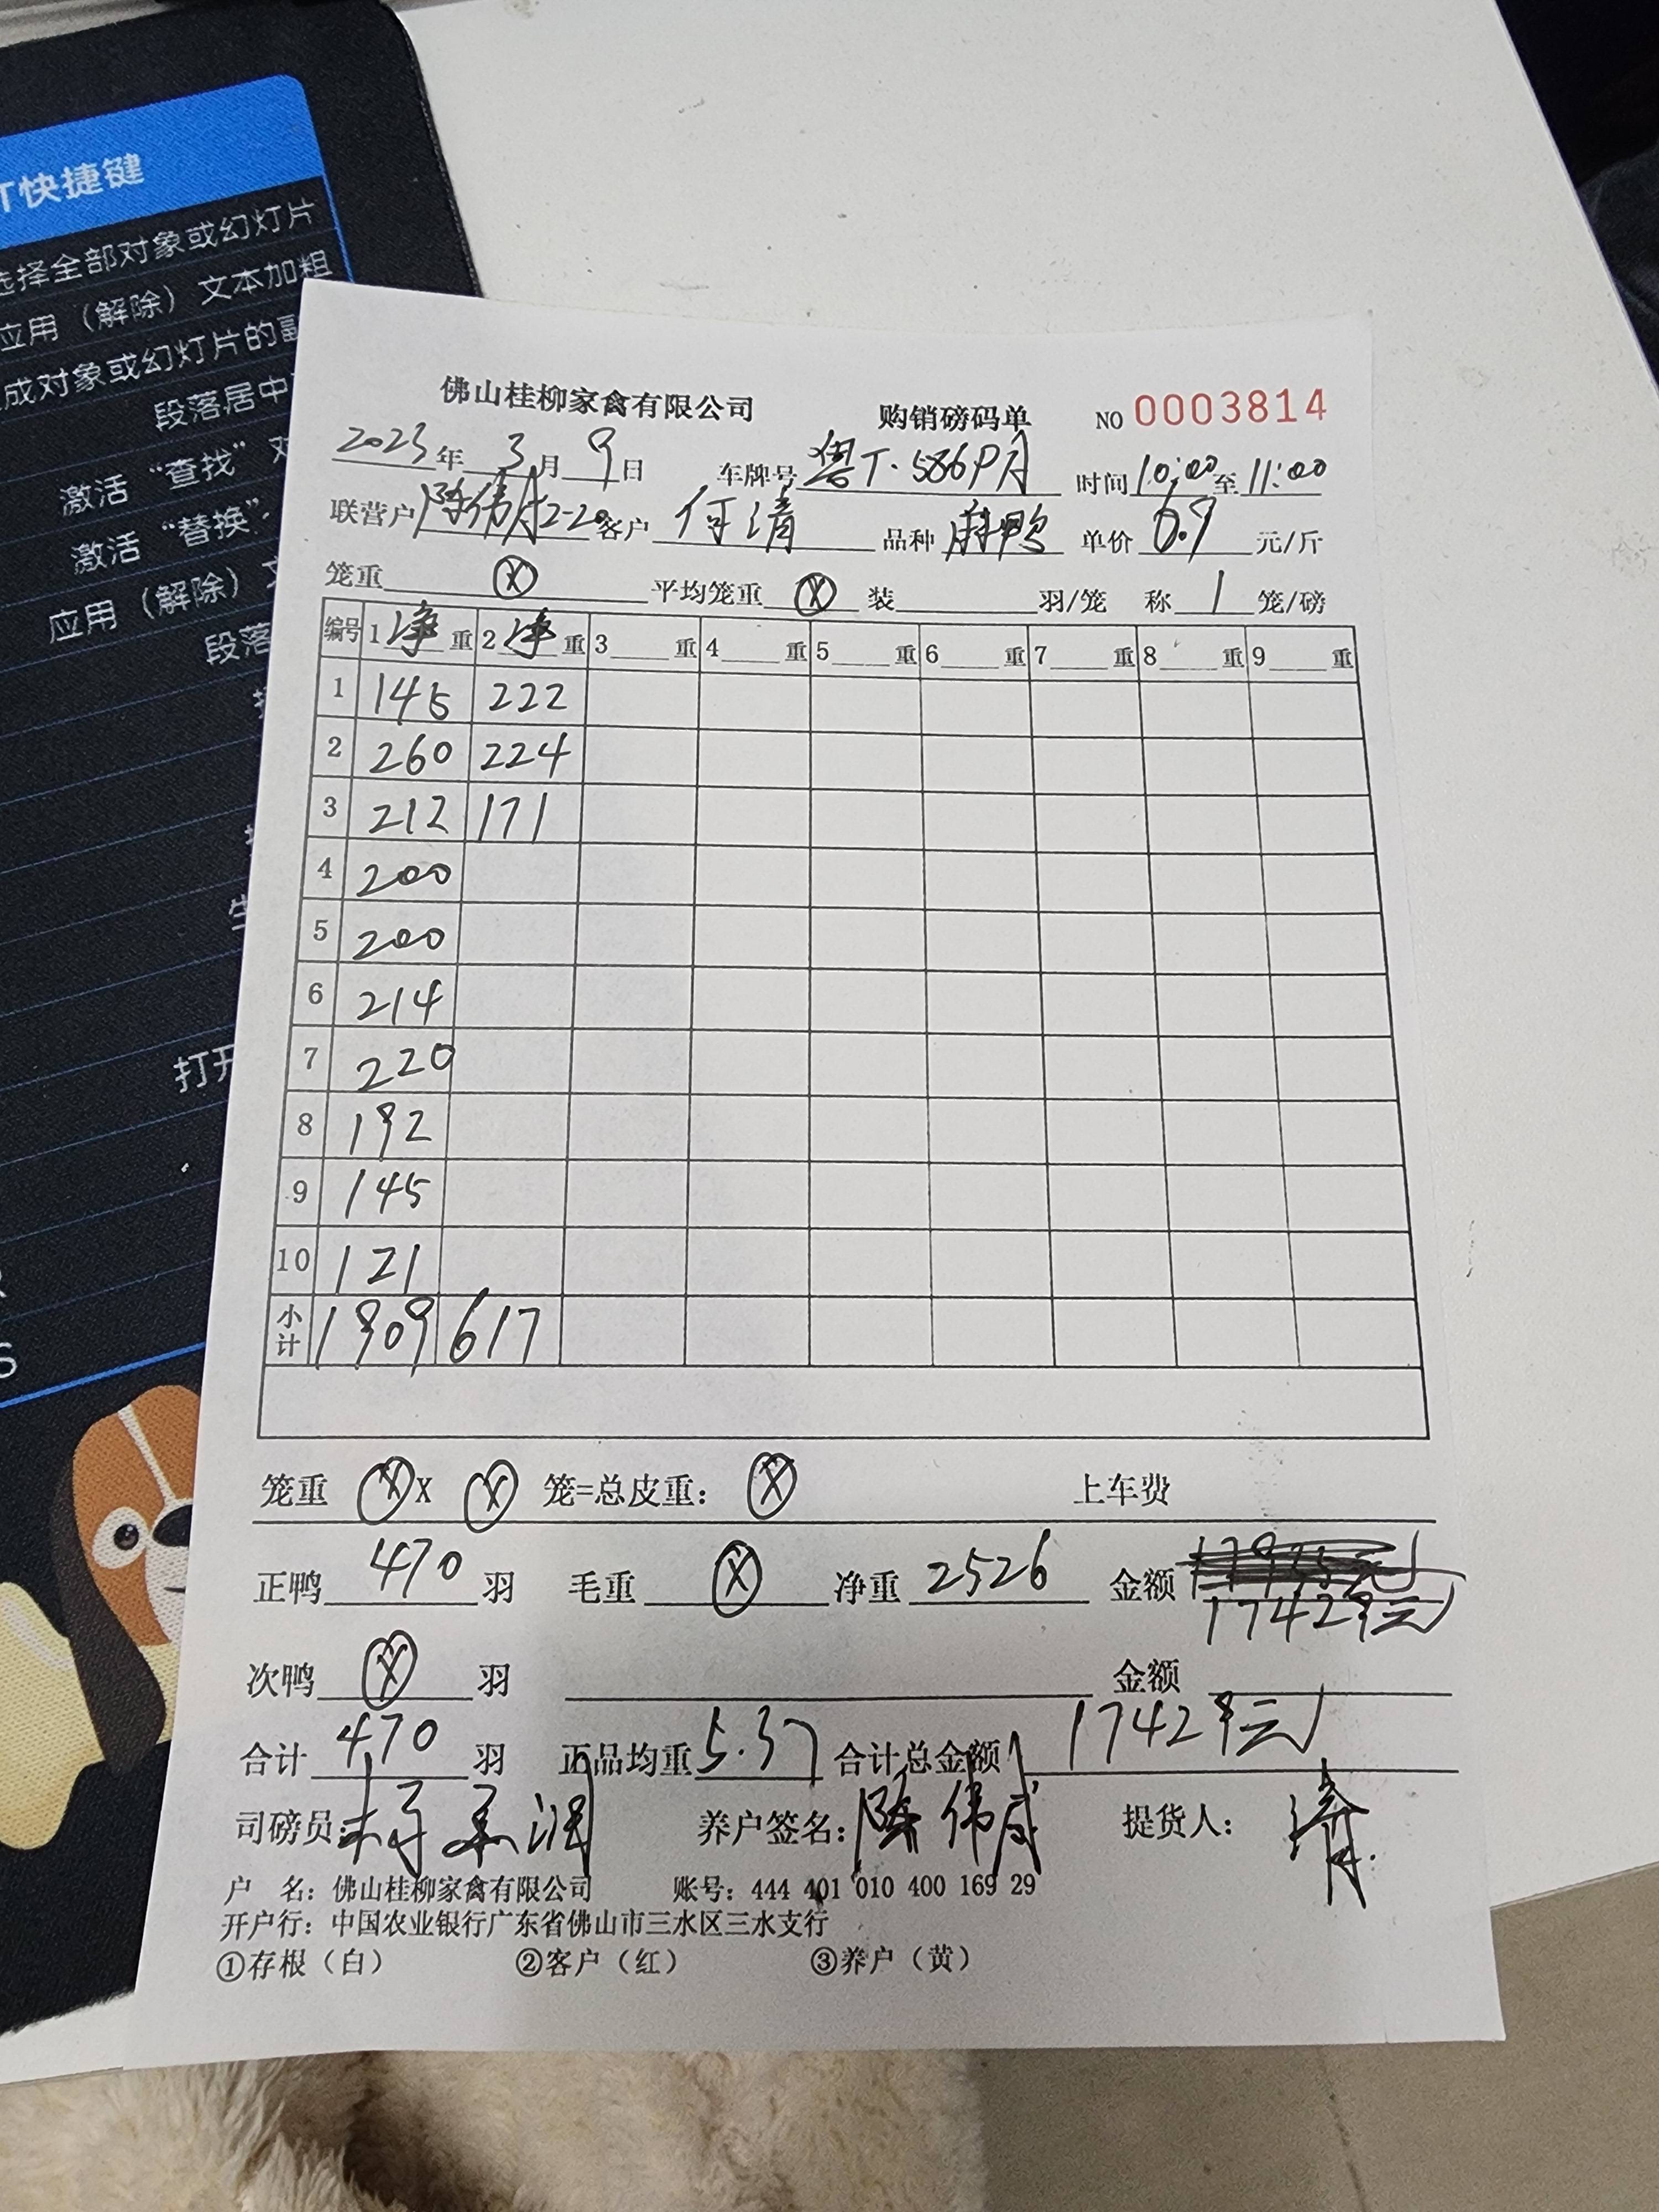 T快捷键
选择全部对象或幻灯片
应用（解除）文本加粗
成对象或幻灯片的副
段落居中
激活“查找”对
激活“替换”
应用（解除）
段落
打开
佛山桂柳家禽有限公司 购销磅码单 NO 0003814
2023年3月9日 车牌号 T·586P 时间10:00至11:00
联营户 陈伟成2-20 客户 何清 品种 麻鸭 单价 6.9 元/斤
笼重 Ⓧ 平均笼重 Ⓧ 装 羽/笼 称 1 笼/磅
编号 1净重 2净重 3 重 4 重 5 重 6 重 7 重 8 重 9 重
1 145 222
2 260 224
3 212 171
4 200
5 200
6 214
7 220
8 192
9 145
10 121
小计 1909 617
笼重 Ⓧ X Ⓧ 笼=总皮重： Ⓧ 上车费
正鸭 470 羽 毛重 Ⓧ 净重 2526 金额
17429元
次鸭 Ⓧ 羽 金额
合计 470 羽 正品均重 5.37 合计总金额 17429元
司磅员： 养户签名：陈伟成 提货人： 清
户 名：佛山桂柳家禽有限公司 账号：444 401 010 400 169 29
开户行：中国农业银行广东省佛山市三水区三水支行
①存根（白） ②客户（红） ③养户（黄）